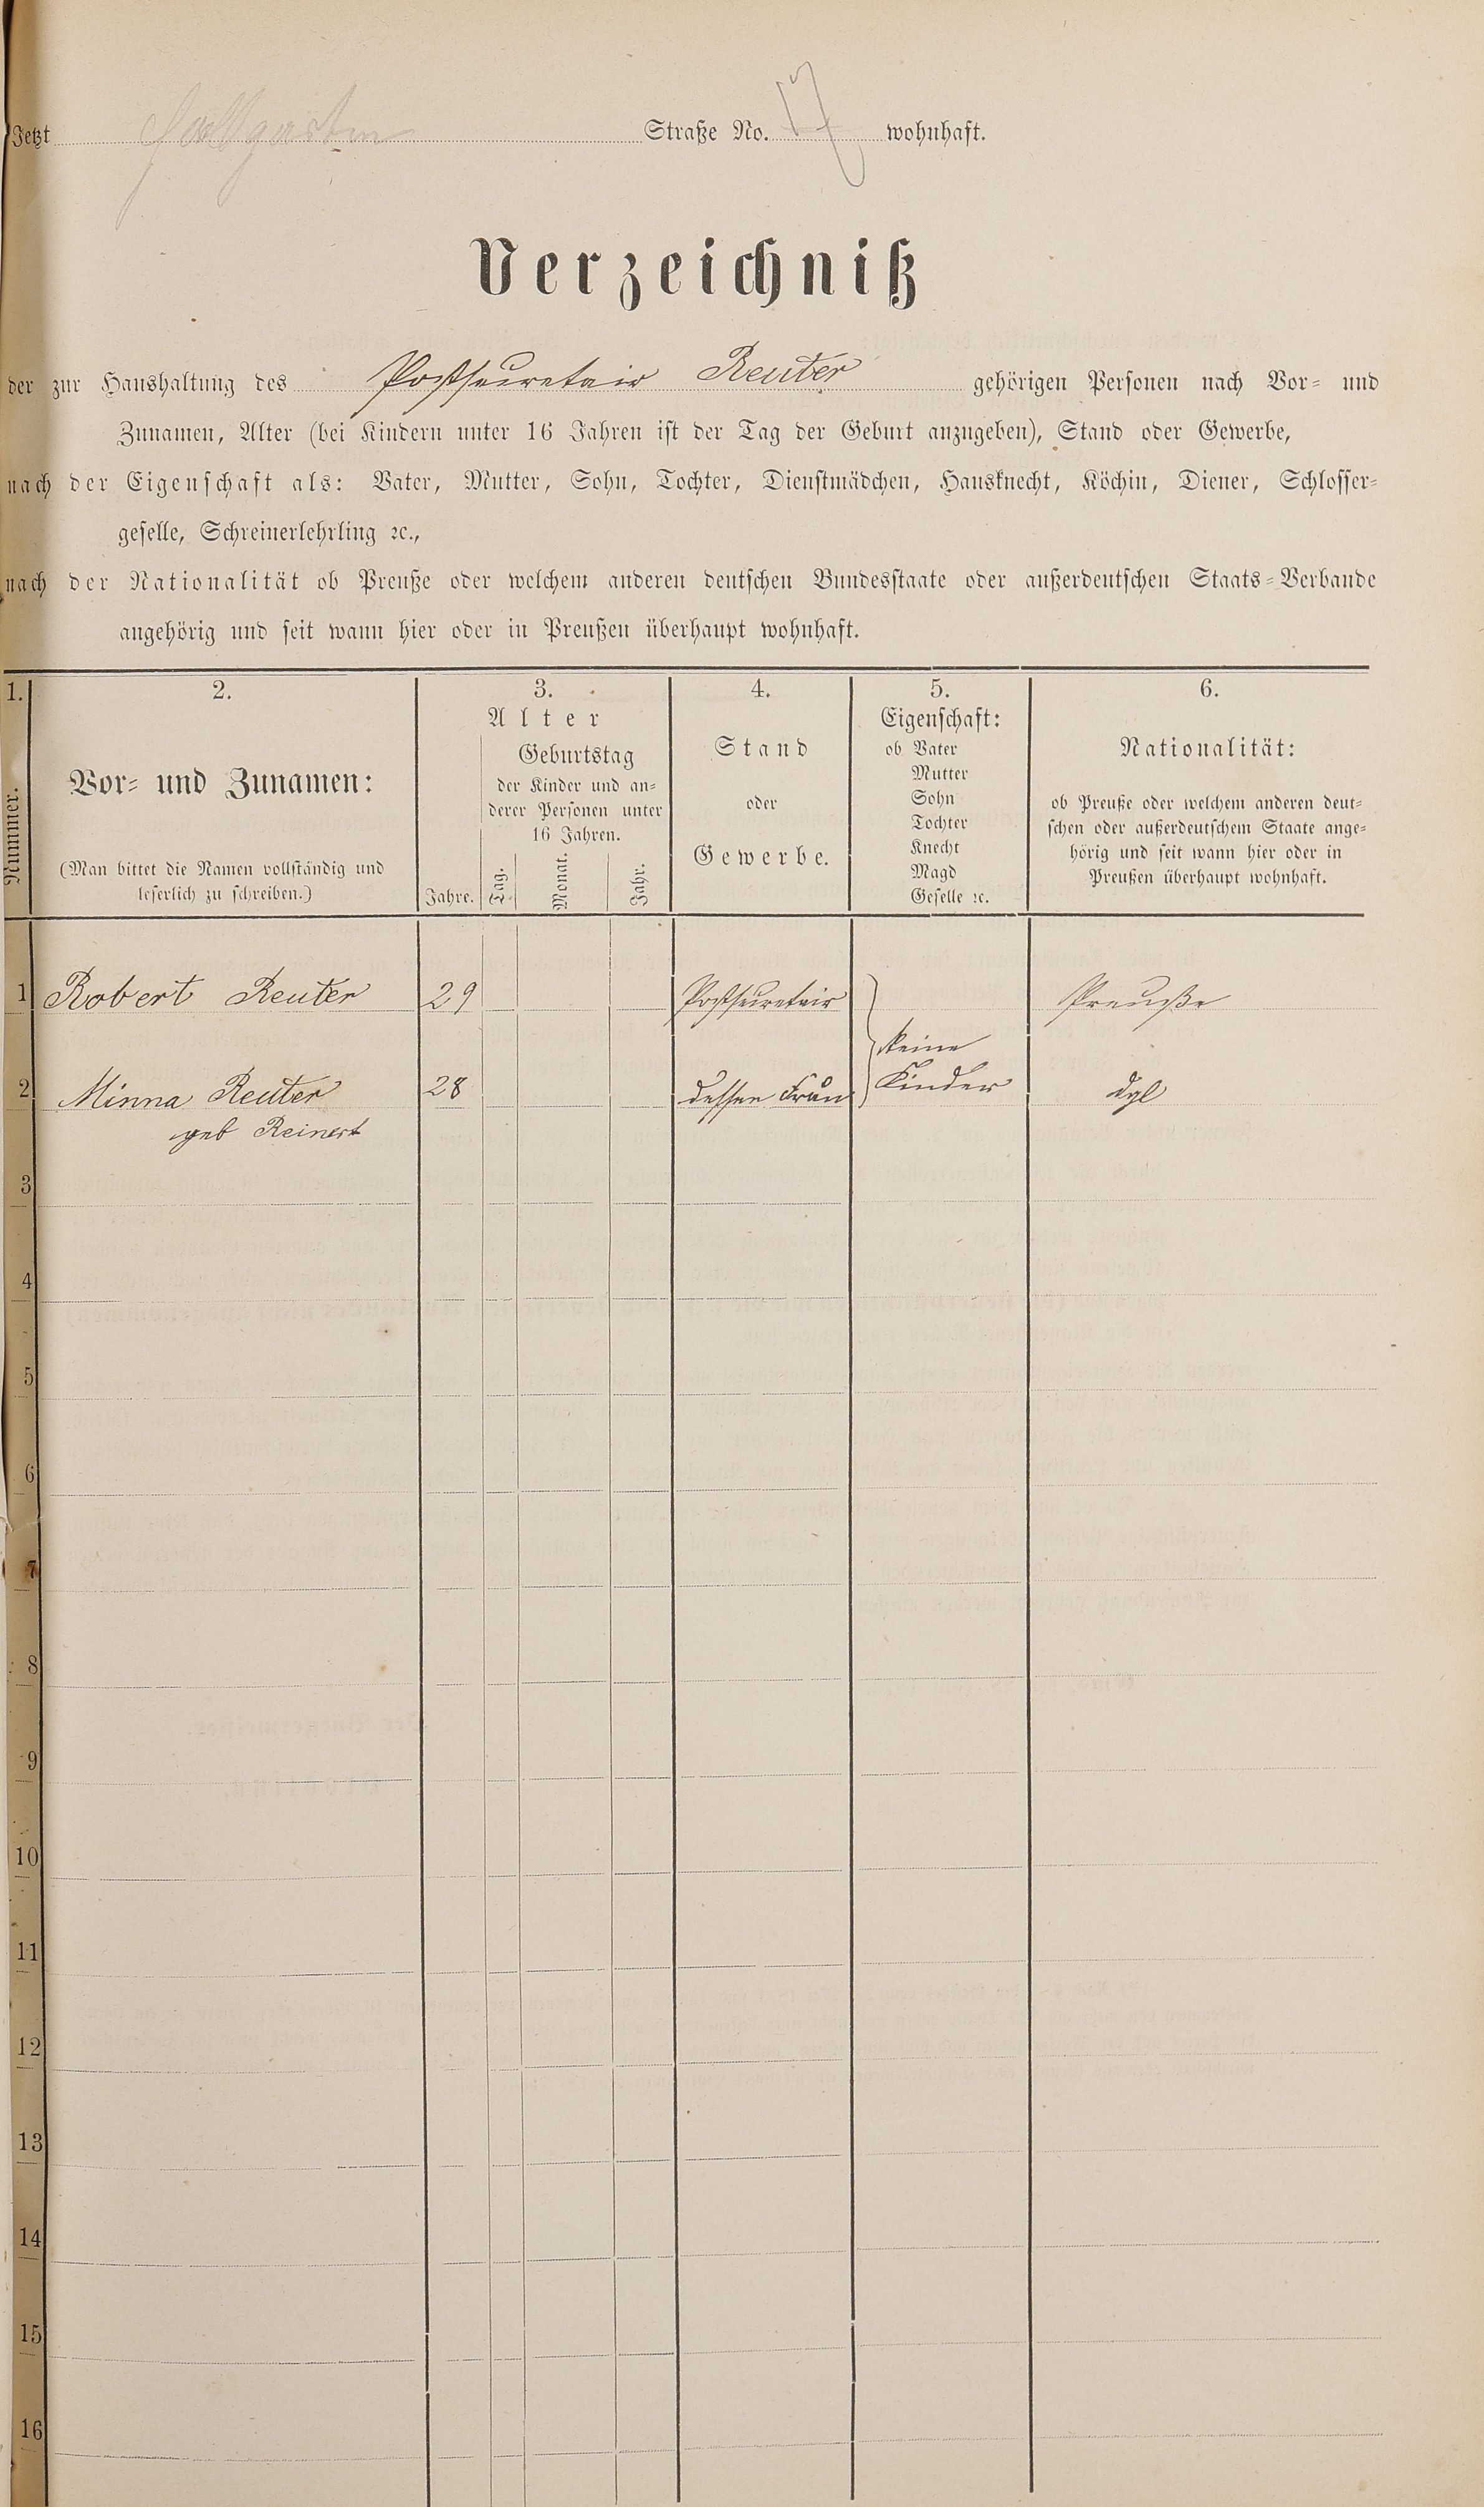 Jetzt Straße No. 17 wohnhaft.
Verzeichniß
der zur Haushaltung des Postsecretair Reuter gehörigen Personen nach Vor- und
Zunamen, Alter (bei Kindern unter 16 Jahren ist der Tag der Geburt anzugeben), Stand oder Gewerbe,
nach der Eigenschaft als: Vater, Mutter, Sohn, Tochter, Dienstmädchen, Hausknecht, Köchin, Diener, Schlosser-
geselle, Schreinerlehrling ꝛc.,
nach der Nationalität ob Preuße oder welchem anderen deutschen Bundesstaate oder außerdeutschen Staats-Verbande
angehörig und seit wann hier oder in Preußen überhaupt wohnhaft.
1.
Nummer.
2.
Vor- und Zunamen:
(Man bittet die Namen vollständig und
leserlich zu schreiben.)
3.
Alter
Jahre.
Geburtstag
der Kinder und an-
derer Personen unter
16 Jahren.
Tag.
Monat.
Jahr.
4.
Stand
oder
Gewerbe.
5.
Eigenschaft:
ob Vater
Mutter
Sohn
Tochter
Knecht
Magd
Geselle ꝛc.
6.
Nationalität:
ob Preuße oder welchem anderen deut-
schen oder außerdeutschem Staate ange-
hörig und seit wann hier oder in
Preußen überhaupt wohnhaft.
1 Robert Reuter 29 Postsecretair Preuße
keine
2 Minna Reuter 28 dessen Frau Kinder dgl
geb Reinert
3
4
5
6
7
8
9
10
11
12
13
14
15
16